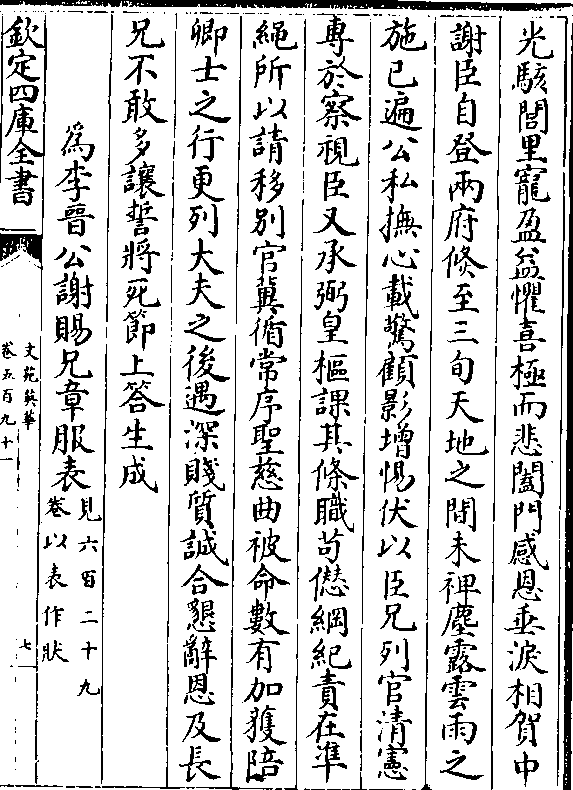 光駭閭里寵盈益懼喜極而悲闔門感恩垂淚相賀中
謝臣自登兩府倐至三旬天地之間未裨塵露雲雨之
施已遍公私撫心載驚顧影增惕伏以臣兄列官清憲
專於察視臣又承弼皇樞課其條職苟愆綱紀責在準
繩所以請移别官冀循常序聖慈曲被命數有加獲陪
卿士之行更列大夫之後遇深賤質誠合懇辭恩及長
兄不敢多讓誓將死節上答生成
爲李晉公謝賜兄章服表
見六百二十九
卷以表作狀
欽定四庫全書
文苑英華
卷五百九十一
七